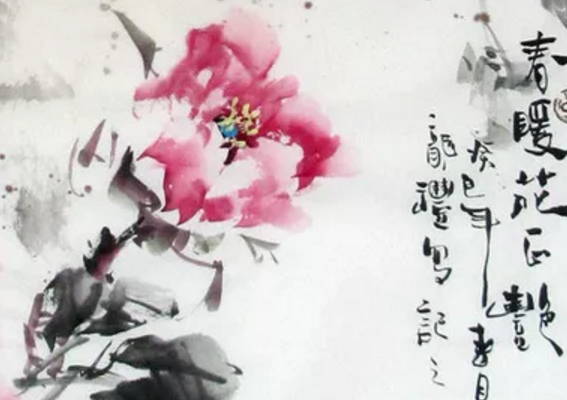 春暖花正艷
癸巳年春月
龍灃寫記之